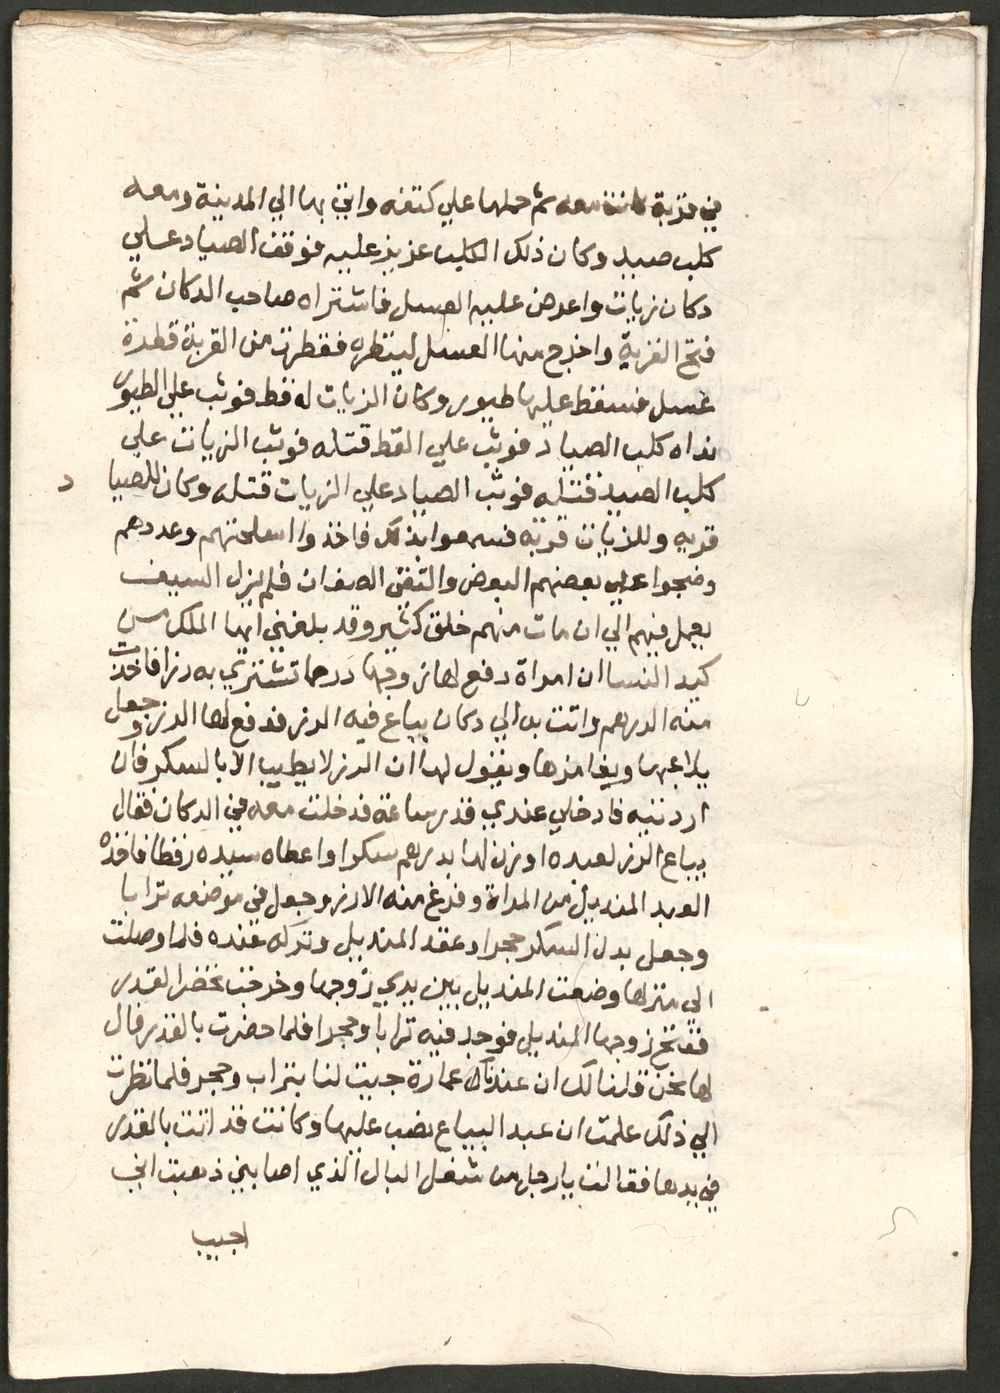 في قربة كانت معه ثم حملها علي كتفه واتي بها الي المدينة ومعه
كلب صيد وكان ذلك الكلب عزيز عليه فوقف الصياد علي
دكان زيات واعرض عليه العسل فاشتراه صاحب الدكان ثم
فتح القربة واخرج منها العسل لينظره فقطرت من القربة قطرة
عسل فسقط عليها طيور وكان الزيات له قط فوثب علي الطيور
فراه كلب الصياد فوثب علي القط قتله فوثب الزيات علي
كلب الصيد فقتله فوثب الصياد علي الزيات قتله وكان للصيا د
قريه وللزيات قريه فسمعوا بذلك فاخذوا اسلحتهم وعددهم
وضجوا علي بعضهم البعض والتقي الصفان فلم يزل السيف
يعمل فيهم الي ان مات منهم خلق كثير وقد بلغني ايها الملك من
كيد النسا ان امراة دفع لها زوجها درهما تشتري به رزا فاخذت
منه الدرهم واتت به الي دكان بياع فيه الرز فدفع لها الرز وجعل
يلاعبها ويغامزها ويقول لها ان الرز لا يطيب الا بالسكر فان
اردتيه فادخلي عندي قدر ساعة فدخلت معه في الدكان فقال
بياع الرز لعبده اوزن لها بدرهم سكرا واعطاه سيده رفطا فاخذه
العبد المنديل من المراة وفرغ منه الارز وجعل في موضعه ترابا
وجعل بدل السكر حجرا وعقد المنديل وتركه عنده فلما وصلت
الى منزلها وضعت المنديل بين يدي زوجها وخرجت تحضر القدر
ففتح زوجها المنديل فوجد فيه ترابا وحجرا فلما حضرت بالقدر قال
لها نحن قلنا لك ان عندنا عمارة جيبت لنا بتراب وحجر فلما نظرت
الي ذلك علمت ان عبد البياع نصب عليها وكانت قد اتت بالقدر
في يدها فقالت يا رجل من شغل البال الذي اصابني ذهبت اني
اجيب